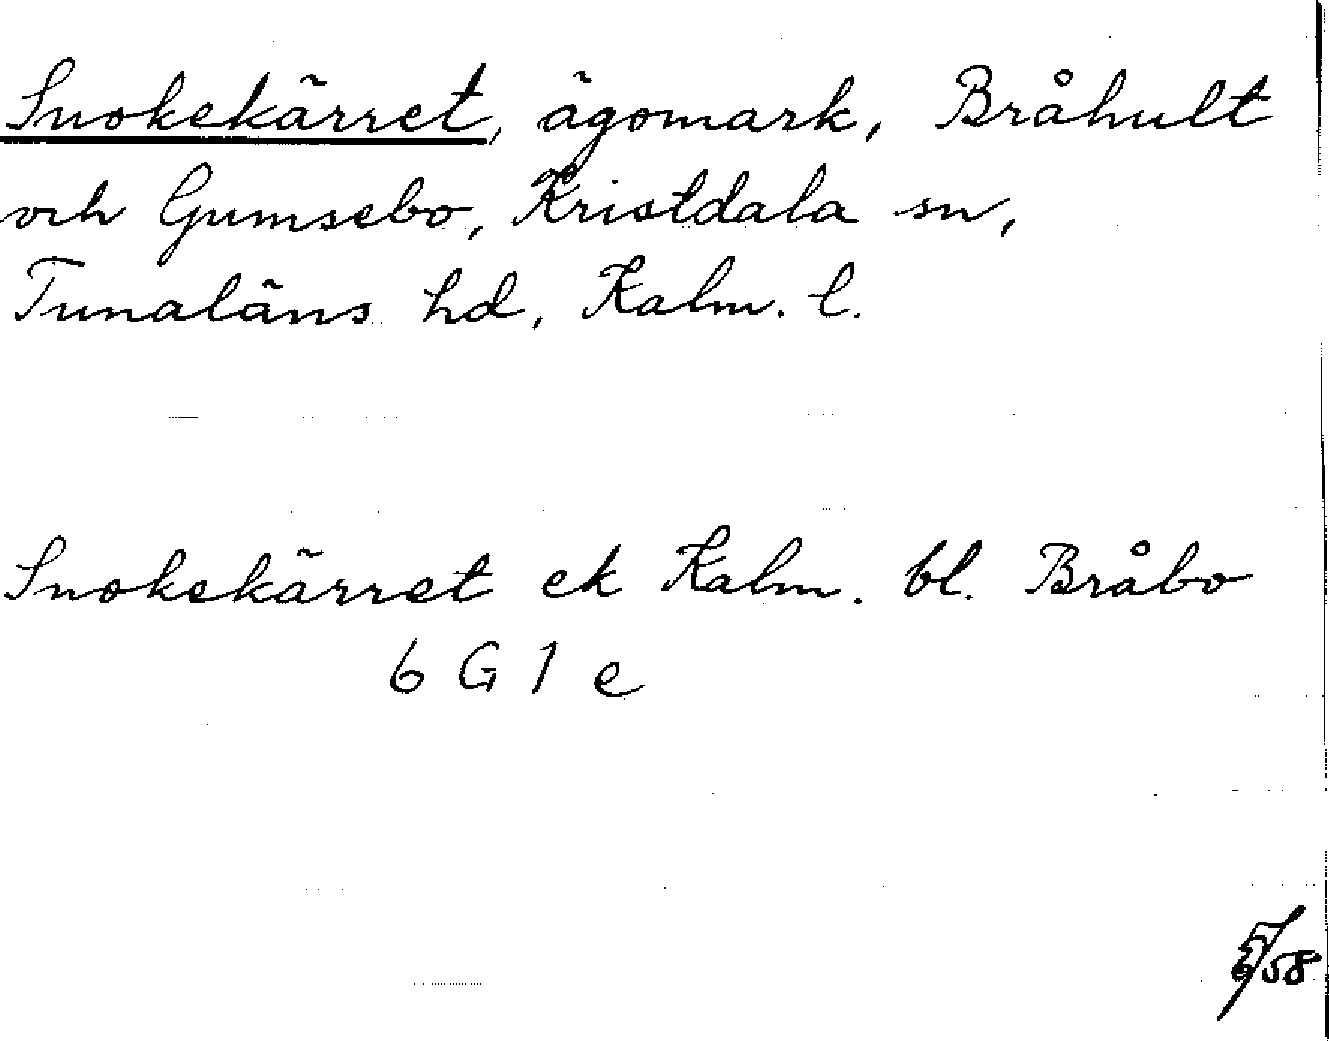 Snokekärret, ägomark, Bråhult
och Gumsebo, Kristdala sn,
Tunaläns hd, Kalm. l.
Snokekärret ek Kalm. bl. Bråbo
6 G 1 e
58